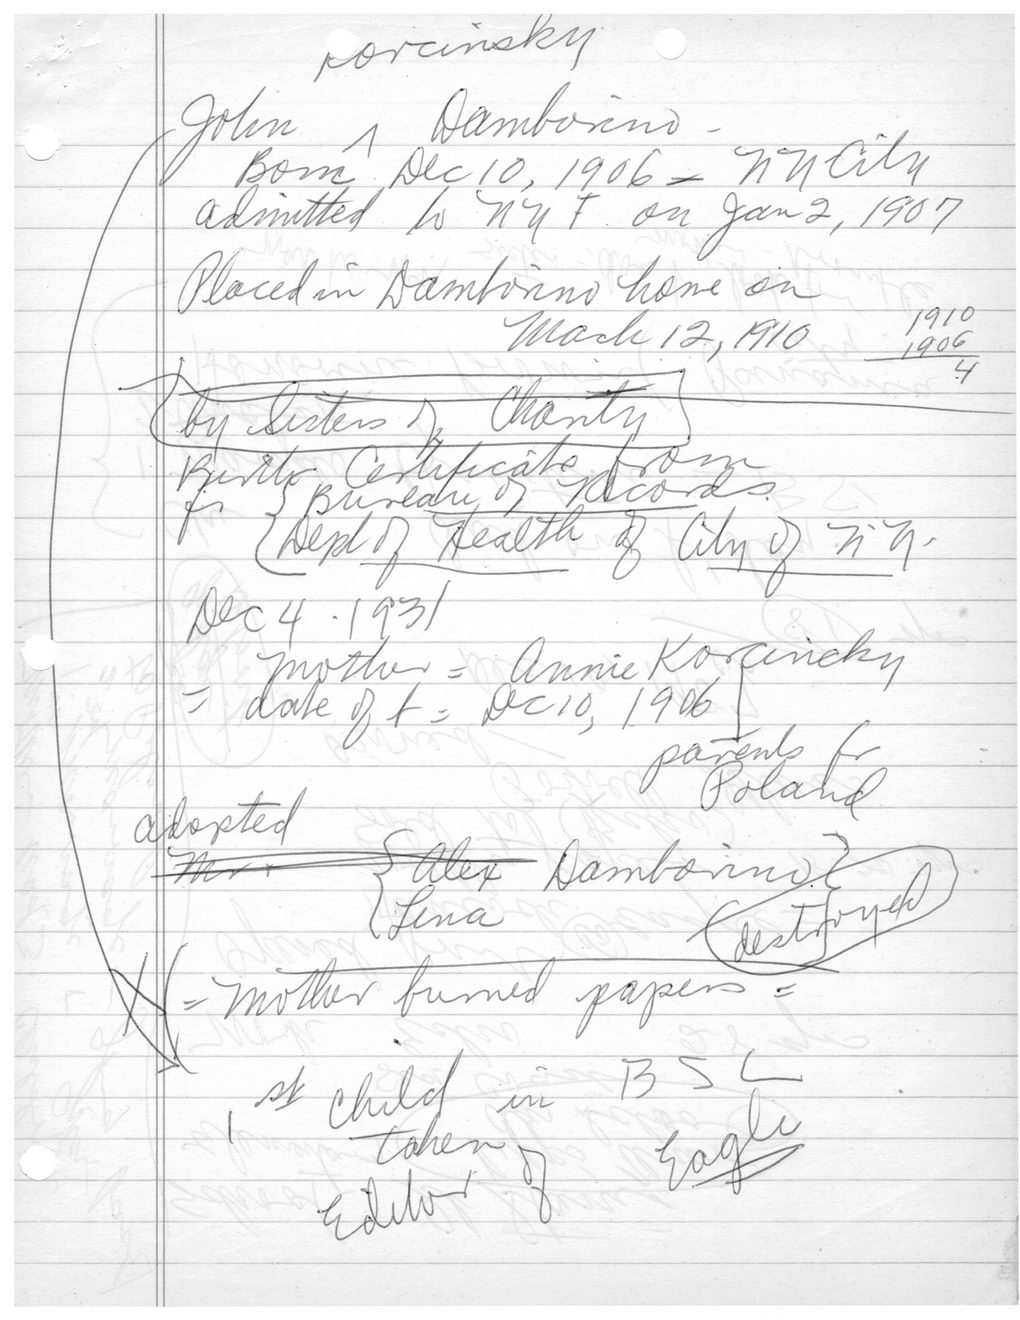 Korcinsky
John ^ Damborino -
Born Dec 10, 1906 = NY City
admitted to NYF on Jan 2, 1907
Placed in Damborino home on
March 12, 1910
1910
1906
4
by Sisters of Charity
Birth Certificate from
fr { Bureau of Records
{ Dept of Health of City of N.Y.
Dec 4. 1931
mother = Annie Korcincky
= date of b = Dec 10, 1906
parents fr
Poland
adopted
Mr.
{ Alex Damborino }
{ Lena
destroyed
= Mother burned papers =
1st child in BSL
taken
Editor of Eagle